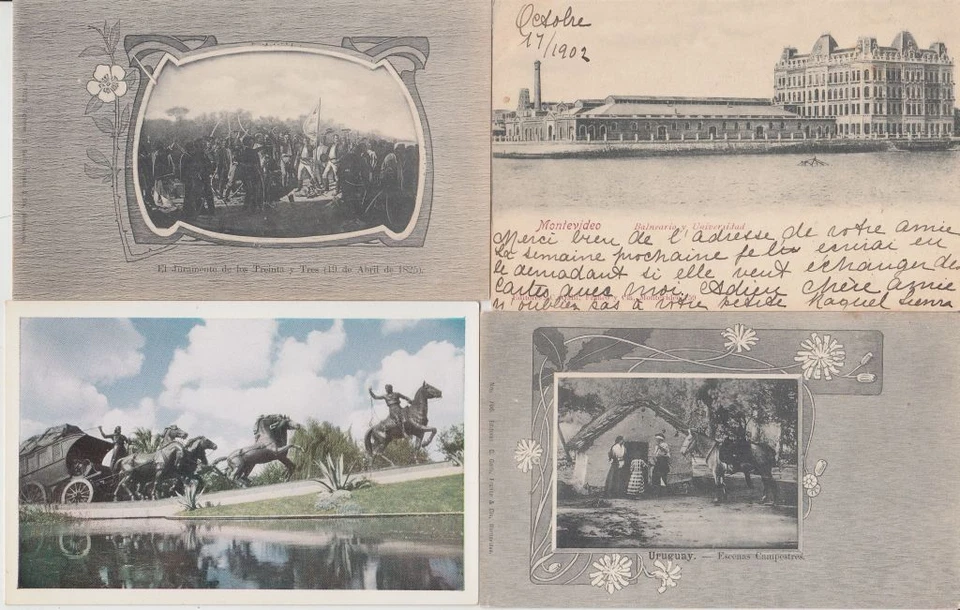 El Juramento de los Treinta y Tres (19 de Abril de 1825).
Octobre
17/1902
Montevideo Balneario y Universidad
Merci bien de l'adresse de votre amie
La semaine prochaine je lui écrirai en
le demadant si elle veut échanger des
cartes avec moi. Adieu chère amie
n'oubliez pas à votre petite Raquel
Uruguay. — Escenas Campestres.